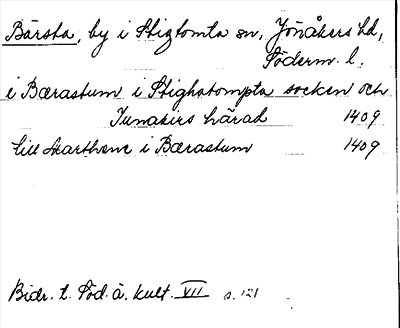 Bärsta, by i Stigtomta sn, Jönåkers hd,
Söderm. l.
i Bærastum i Stighstompta socken och
Junakirs härad 1409
till Marthene i Bærastum 1409
Bidr. t. Söd. ä. kult. VII s. 121